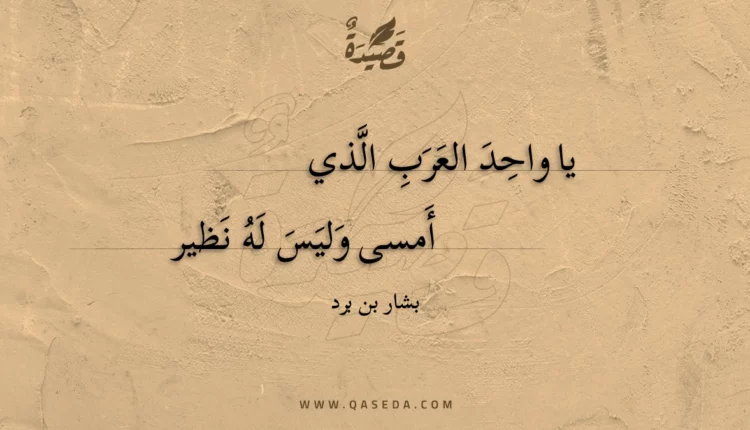 قَصِيدَةٌ
يا واحِدَ العَرَبِ الَّذي
أَمسى وَليَسَ لَهُ نَظير
بشار بن برد
WWW.QASEDA.COM